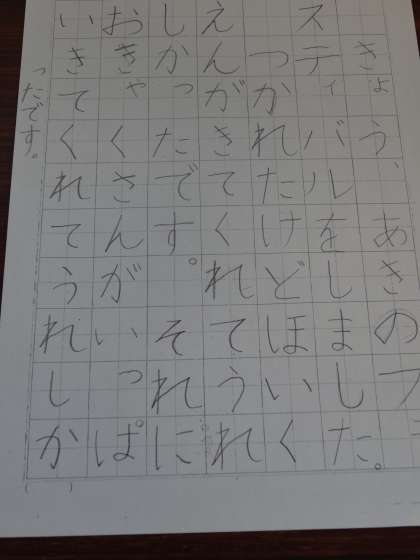 きょう、あきのフェ
スティバルをしました。
つかれたけどほいく
えんがきてくれてうれ
しかったです。それに
おきゃくさんがいっぱ
いきてくれてうれしか
ったです。